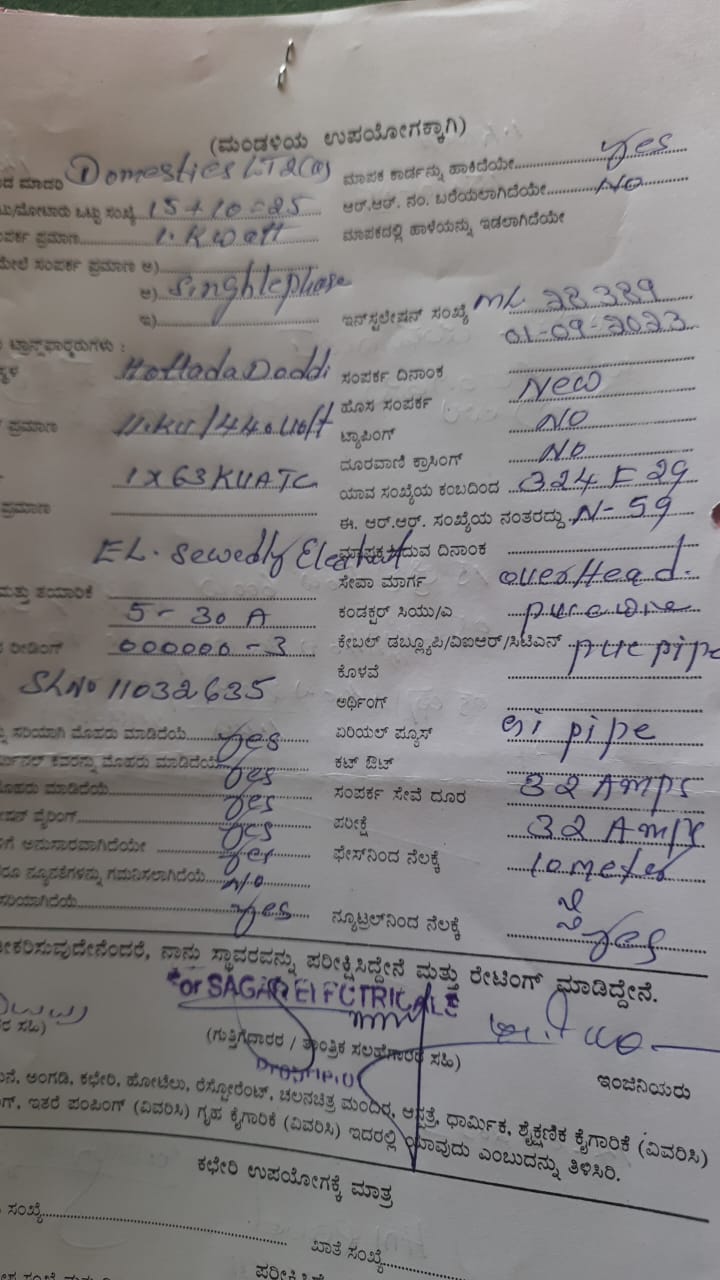 (ಮಂಡಳಿಯ ಉಪಯೋಗಕ್ಕಾಗಿ)
ದ ಮಾದರಿ Domestics LT2(a) ಮಾಪಕ ಕಾರ್ಡನ್ನು ಹಾಕಿದೆಯೇ Yes
ಒಟ್ಟು ಸಂಖ್ಯೆ 15+10=25 ಆರ್.ಆರ್. ನಂ. ಬರೆಯಲಾಗಿದೆಯೇ No
ಪರ್ಕ ಪ್ರಮಾಣ 1. KWatt ಮಾಪಕದಲ್ಲಿ ಹಾಳೆಯನ್ನು ಇಡಲಾಗಿದೆಯೇ
ಮೇಲೆ ಸಂಪರ್ಕ ಪ್ರಮಾಣ ಅ)
ಆ) Singhlephase
ಇ) ಇನ್‌ಸ್ಟಲೇಷನ್ ಸಂಖ್ಯೆ ML 28389
01-09-2023
ಟ್ರಾನ್ಸ್‌ಫಾರ್ಮರುಗಳು :
ಸ್ಥಳ Hottada Daddi ಸಂಪರ್ಕ ದಿನಾಂಕ
ಹೊಸ ಸಂಪರ್ಕ New
ಪ್ರಮಾಣ 11.KV/440 Volt ಟ್ಯಾಪಿಂಗ್ NO
ದೂರವಾಣಿ ಕ್ರಾಸಿಂಗ್ NO
1X63KVA TC ಯಾವ ಸಂಖ್ಯೆಯ ಕಂಬದಿಂದ 324 F 29
ಪ್ರಮಾಣ ಈ. ಆರ್.ಆರ್. ಸಂಖ್ಯೆಯ ನಂತರದ್ದು N-59
EL. Sewedly ದಿನಾಂಕ
ಮತ್ತು ತಯಾರಿಕೆ ಸೇವಾ ಮಾರ್ಗ overHead.
5-30 A ಕಂಡಕ್ಟರ್ ಸಿಯು/ಎ pvc wire
ರೀಡಿಂಗ್ 000000-3 ಕೇಬಲ್ ಡಬ್ಲ್ಯೂಪಿ/ವಿಐಆರ್/ಸಿಟಿಎಸ್ pvc pipe
ಕೊಳವೆ
SLNO 11032635 ಅರ್ಥಿಂಗ್
ಸರಿಯಾಗಿ ಮೊಹರು ಮಾಡಿದೆಯೆ Yes ಏರಿಯಲ್ ಫ್ಯೂಸ್ GI pipe
ಕವರನ್ನು ಮೊಹರು ಮಾಡಿದೆಯೆ Yes ಕಟ್ ಔಟ್
ಮೊಹರು ಮಾಡಿದೆಯೆ Yes ಸಂಪರ್ಕ ಸೇವೆ ದೂರ 32 Amps
ವೈರಿಂಗ್ Yes ಪರೀಕ್ಷೆ 32 Amps
ಅನುಸಾರವಾಗಿದೆಯೇ Yes ಫೇಸ್‌ನಿಂದ ನೆಲಕ್ಕೆ 10 meter
ನ್ಯೂನತೆಗಳನ್ನು ಗಮನಿಸಲಾಗಿದೆಯೆ No
ಸರಿಯಾಗಿದೆಯೆ Yes ನ್ಯೂಟ್ರಲ್‌ನಿಂದ ನೆಲಕ್ಕೆ Yes
ಕರಿಸುವುದೇನೆಂದರೆ, ನಾನು ಸ್ಥಾವರವನ್ನು ಪರೀಕ್ಷಿಸಿದ್ದೇನೆ ಮತ್ತು ರೇಟಿಂಗ್ ಮಾಡಿದ್ದೇನೆ.
For SAGAR ELECTRICALS
ಸಹಿ) (ಗುತ್ತಿಗೆದಾರರ / ತಾಂತ್ರಿಕ ಸಲಹೆಗಾರರ ಸಹಿ)
ಇಂಜಿನಿಯರು
ನೆ, ಅಂಗಡಿ, ಕಛೇರಿ, ಹೋಟೆಲು, ರೆಸ್ಟೋರೆಂಟ್, ಚಲನಚಿತ್ರ ಮಂದಿರ, ಆಸ್ಪತ್ರೆ, ಧಾರ್ಮಿಕ, ಶೈಕ್ಷಣಿಕ ಕೈಗಾರಿಕೆ (ವಿವರಿಸಿ)
ಗ್, ಇತರೆ ಪಂಪಿಂಗ್ (ವಿವರಿಸಿ) ಗೃಹ ಕೈಗಾರಿಕೆ (ವಿವರಿಸಿ) ಇದರಲ್ಲಿ ಯಾವುದು ಎಂಬುದನ್ನು ತಿಳಿಸಿರಿ.
ಕಛೇರಿ ಉಪಯೋಗಕ್ಕೆ ಮಾತ್ರ
ಸಂಖ್ಯೆ ಖಾತೆ ಸಂಖ್ಯೆ